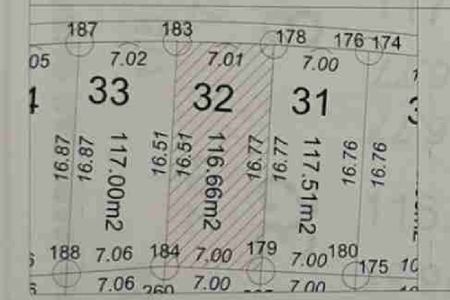 187 183 178 176 174
05 7.02 7.01 7.00
33 32 31
16.87 16.87 117.00m2 16.51 16.51 116.66m2 16.77 16.77 117.51m2 16.76 16.76
188 7.06 184 7,00 179 7.00 180 175 10
7.06 260 7.00 7.00